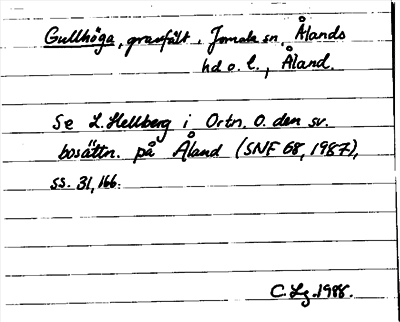 Gullhöga, gravfält, Jomala sn, Ålands
hd o. l., Åland.
Se L. Hellberg i Ortn. o. den sv.
bosättn. på Åland (SNF 68, 1987),
ss. 31, 166.
C. Lg. 1988.